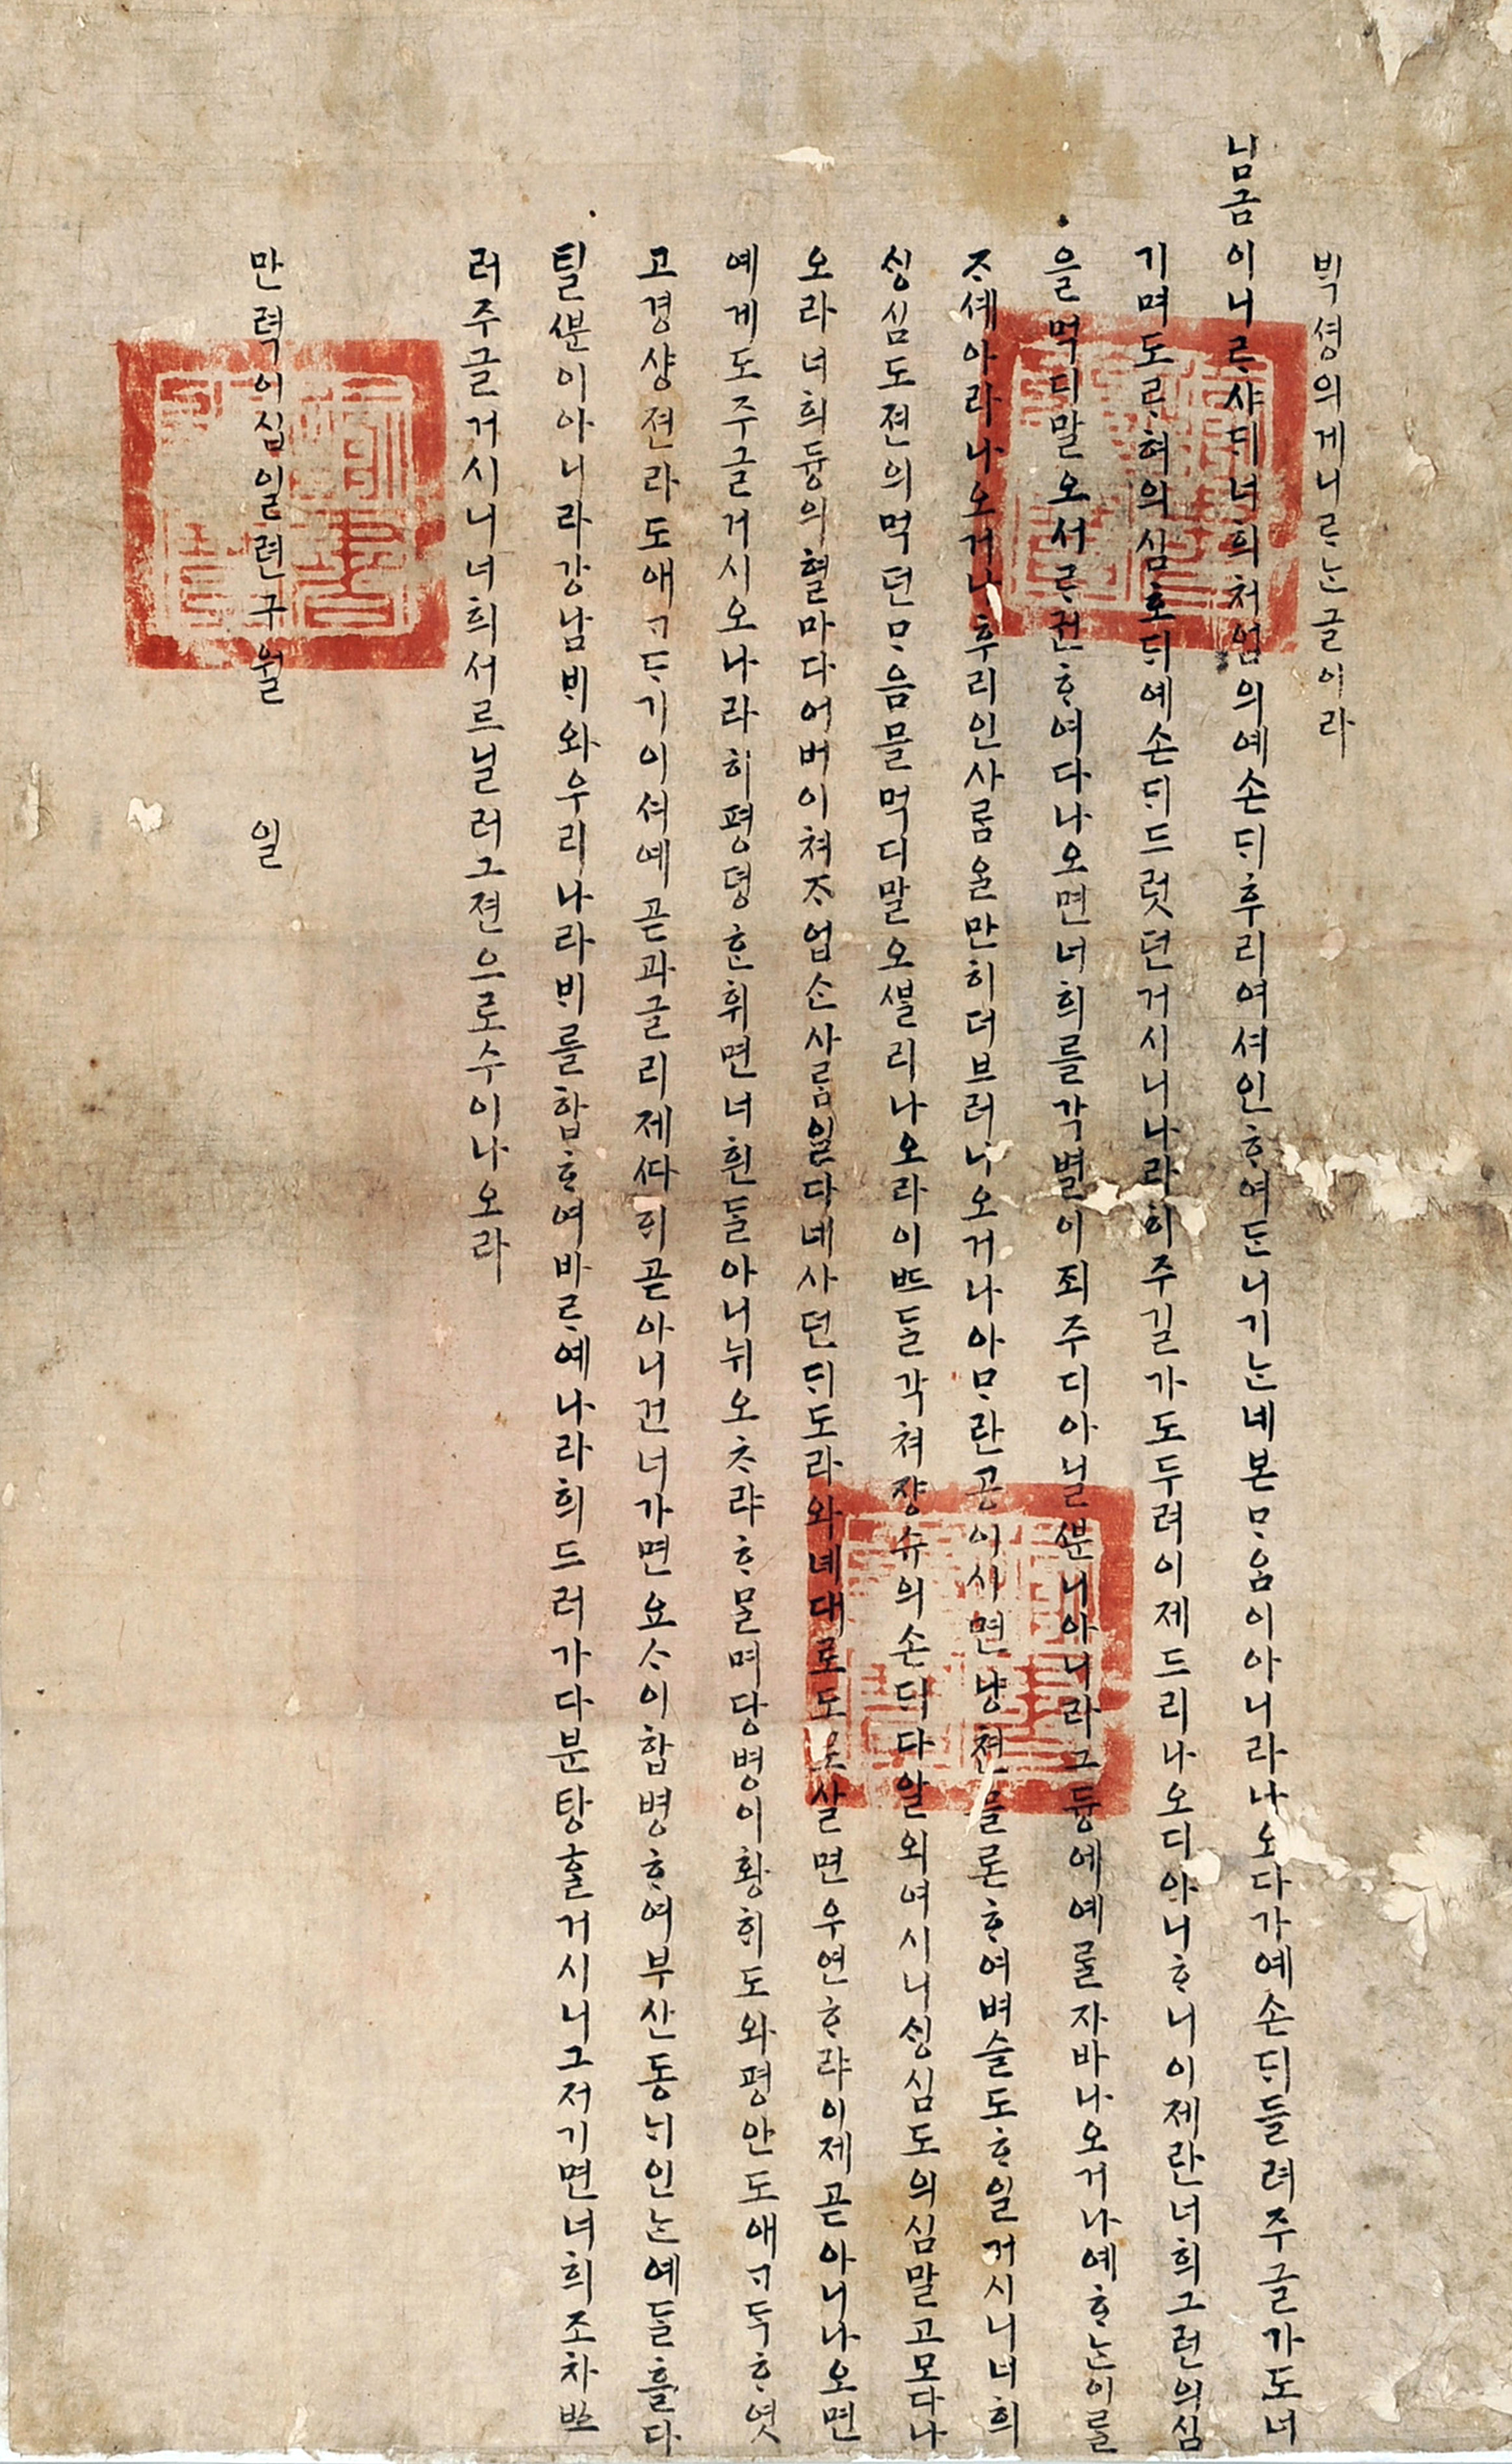 ᄇᆡᆨ셩의게 니ᄅᆞᄂᆞᆫ 글이라
님금이 니ᄅᆞ샤ᄃᆡ 너희 처엄의 예손ᄃᆡ 후리여셔 인ᄒᆞ여 ᄃᆞᆫ니기ᄂᆞᆫ 네 본ᄆᆞᄋᆞᆷ이 아니라 나오다가 예손ᄃᆡ 들려 주글가도 너
기며 도ᄅᆞ혀 의심호ᄃᆡ 예손ᄃᆡ 드럿던 거시니 나라히 주길가도 두려 이제 드리 나오디 아니ᄒᆞ니 이제란 너희 그런 의심
을 먹디 말오 서ᄅᆞ 권ᄒᆞ여 다 나오면 너희를 각별이 죄 주디 아닐 ᄲᅮᆫ니 아니라 그 듕에 예ᄅᆞᆯ 자바 나오거나 예 ᄒᆞᄂᆞᆫ 이ᄅᆞᆯ
ᄌᆞ셰 아라 나오거나 후리인 사ᄅᆞᆷ을 만히 더브러 나오거나 아ᄆᆞ란 공 이시면 냥쳔 믈론ᄒᆞ여 벼슬도 ᄒᆞ일 거시니 너희
ᄉᆡᆼ심도 젼의 먹던 ᄆᆞᄋᆞᆷ믈 먹디 말오 ᄲᆞᆯ리 나오라 이 ᄠᅳ들 각 쳐 쟝슈의손ᄃᆡ 다 알외여시니 ᄉᆡᆼ심도 의심 말고 모다 나
오라 너희 듕의 혈마 다 어버이 쳐ᄌᆞ 업ᄉᆞᆫ 사ᄅᆞᆷ일다 네 사던 ᄃᆡ 도라와 녜대로 도로 살면 우연ᄒᆞ랴 이제 곧 아니 나오면
예게도 주글 거시오 나라히 평뎡ᄒᆞᆫ 휘면 너흰들 아니 뉘오ᄎᆞ랴 ᄒᆞᄆᆞᆯ며 당병이 황ᄒᆡ도와 평안도애 ᄀᆞᄃᆞᆨᄒᆞ엿
고 경샹 젼라도애 ᄀᆞᄃᆞ기 이셔 예 곧 과글리 제 ᄯᅡᄒᆡ 곧 아니 건너가면 요ᄉᆞ이 합병ᄒᆞ여 부산 동ᄂᆡ 인ᄂᆞᆫ 예들흘 다
틸 ᄲᅮᆫ이 아니라 강남 ᄇᆡ와 우리나라 ᄇᆡ를 합ᄒᆞ여 바ᄅᆞ 예나라희 드러가 다 분탕ᄒᆞᆯ 거시니 그 저기면 너희조차 ᄡᅳ
러 주글 거시니 너희 서르 닐러 그 젼으로 수이 나오라
만력 이십일련 구월 일